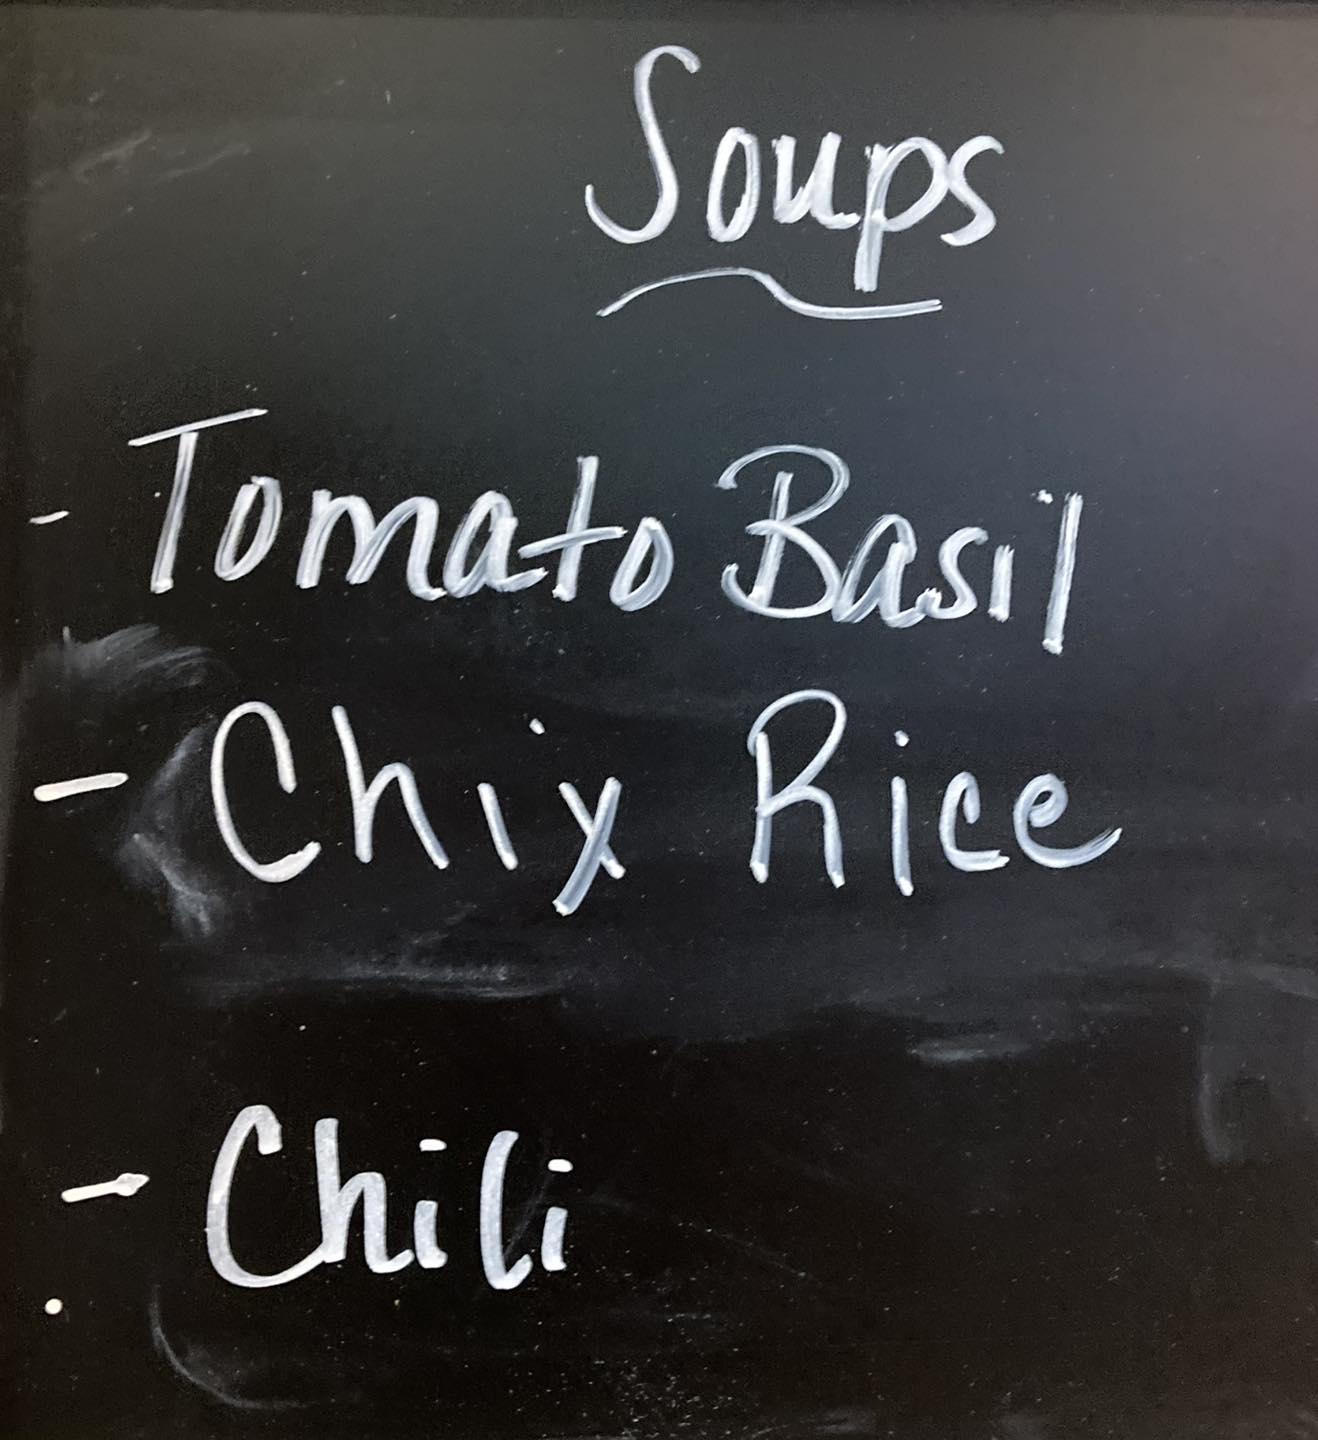 Soups
- Tomato Basil
- Chix Rice
- Chili